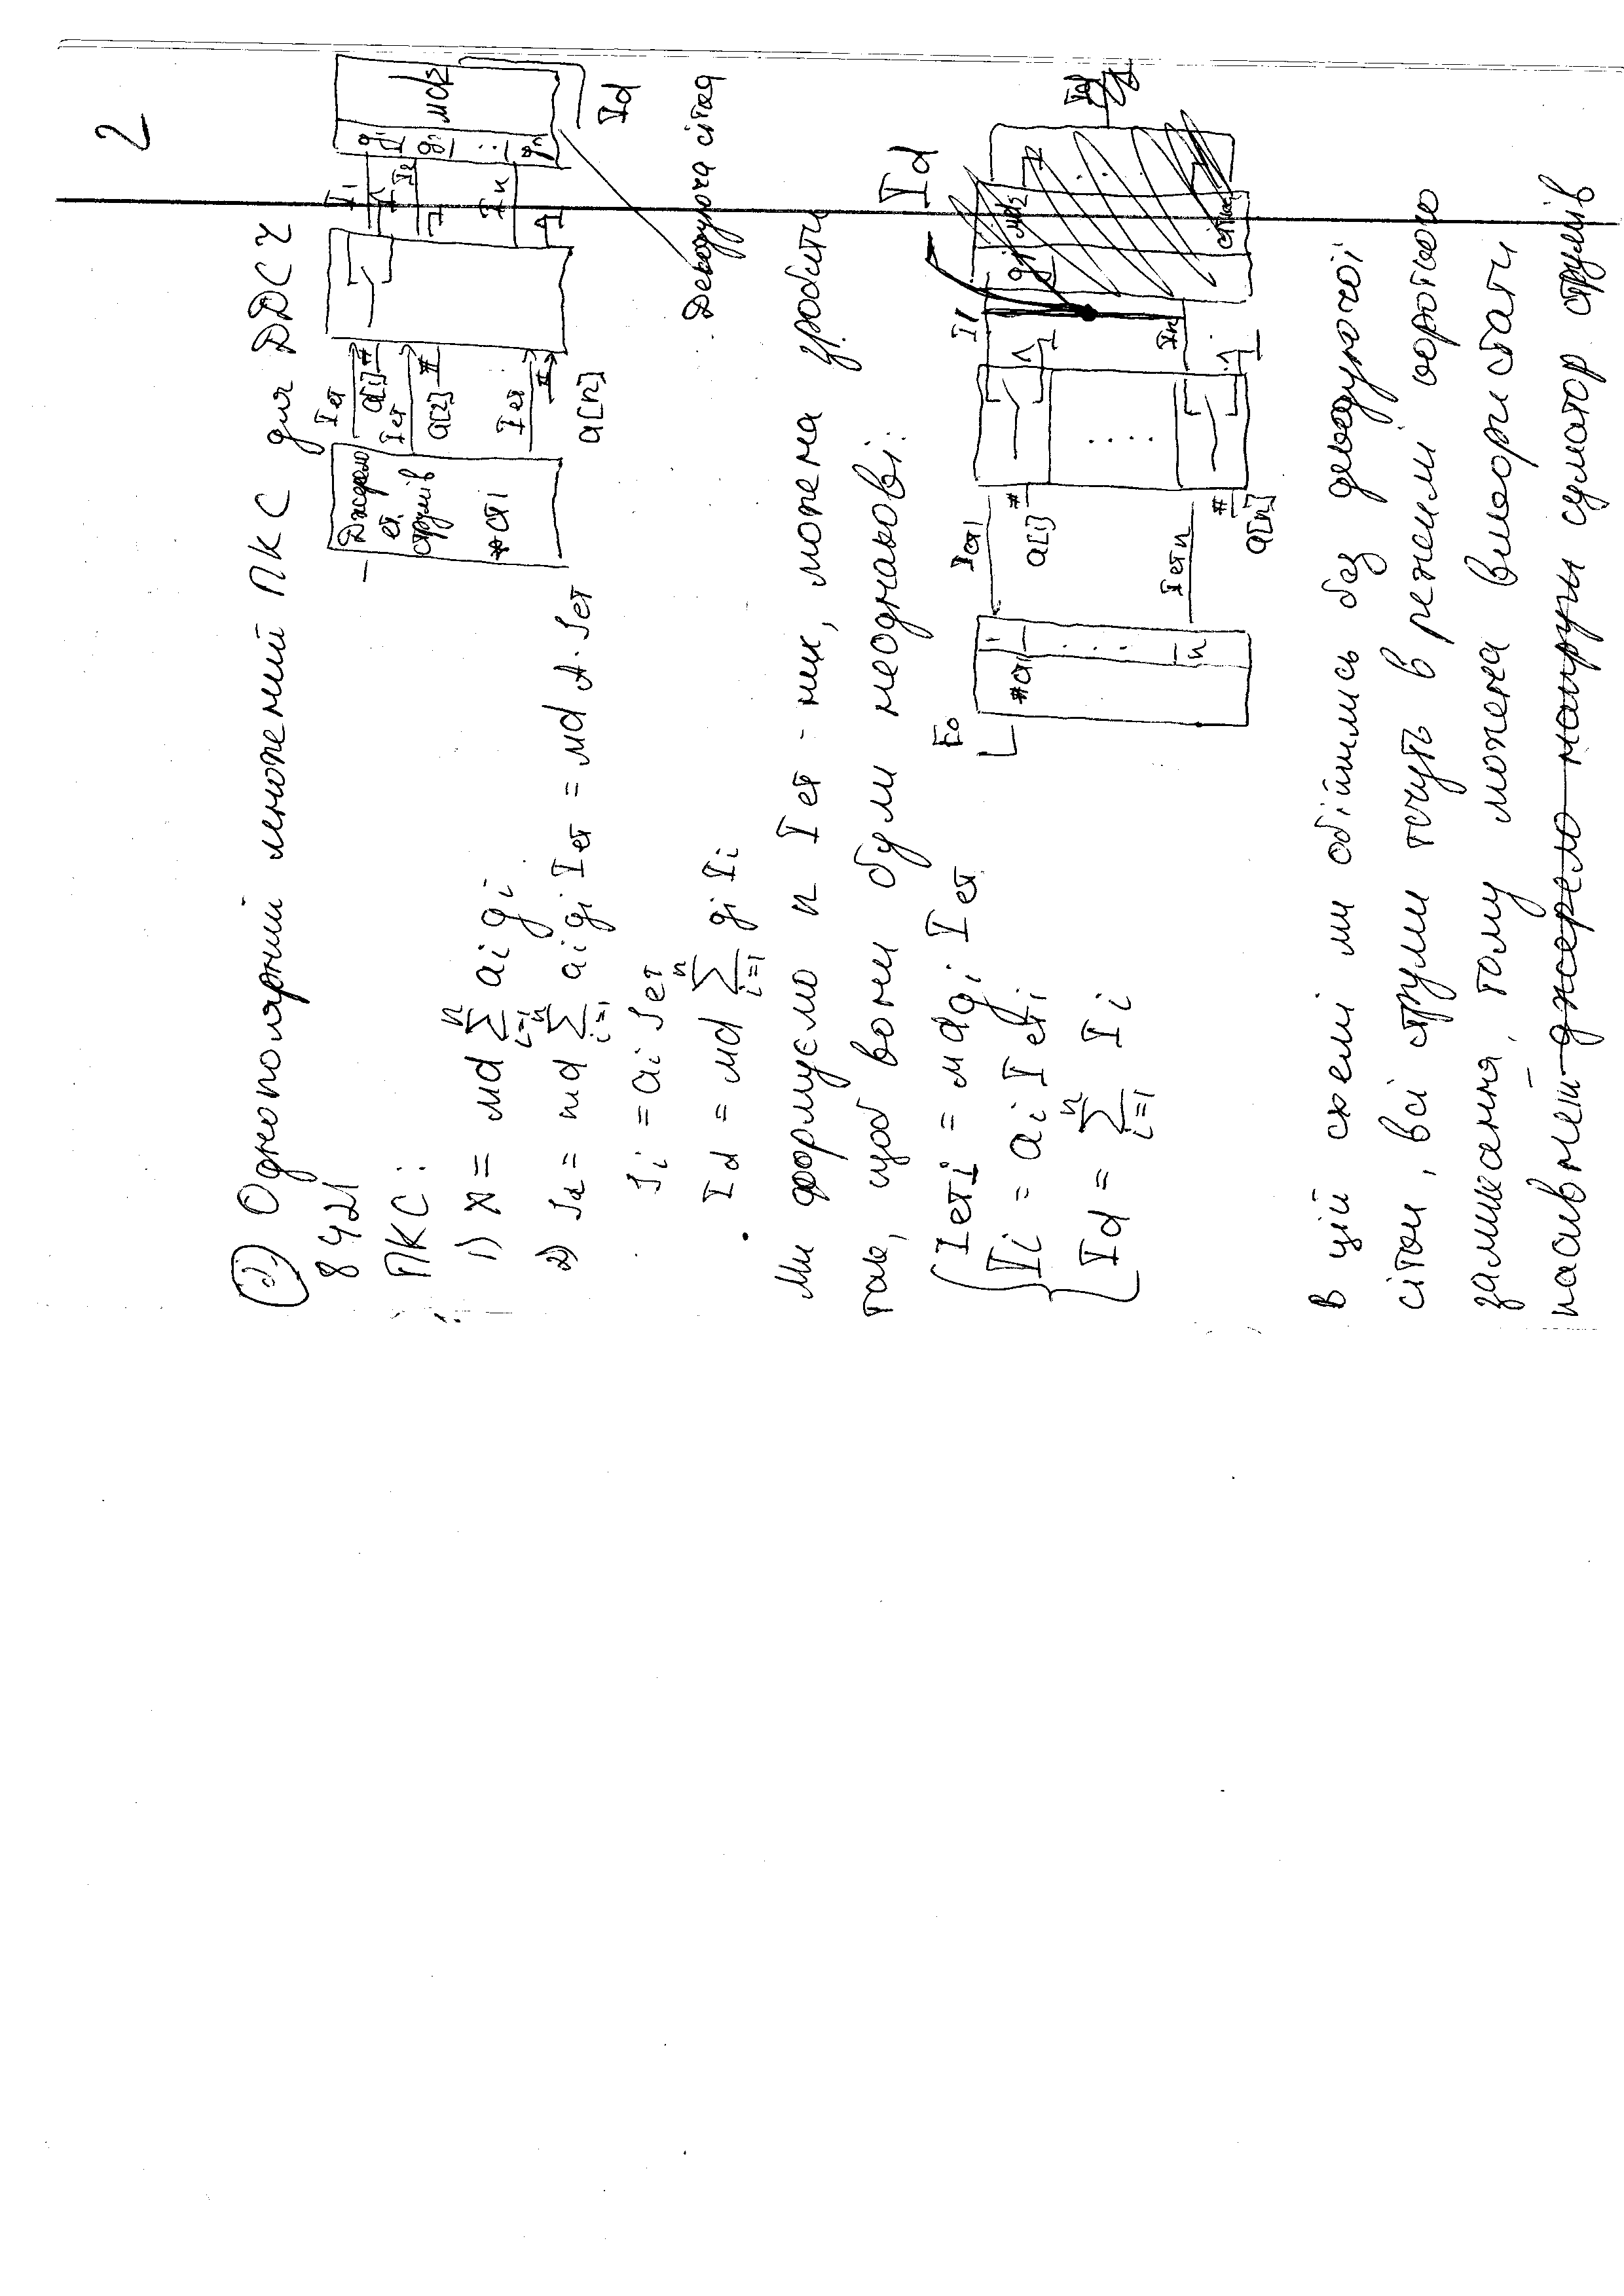 2
2) Однополярний множений ПКС для ДДСЧ
8421
ПКС:
1) X = мd Σ ai gi
2) Id = md Σ ai gi Iет = мd A · Iет
Ii = ai Iет
Id = мd Σ gi Ii
Джерело
ет.
струмів
#СТ1
Iет
a[1]
Iет
a[2]
Iет
a[n]
I1
I2
In
g1
g2
gn
мdΣ
Id
Декодуюча сітка
Ми формуємо n Iет - них, можна зробити
так, щоб вони були неоднакові:
Iетi = мd gi Iет
Ii = ai Iетi
Id = Σ Ii
E0
#СТ1
1
n
Iет1
a[1]
Iетn
a[n]
I1
In
Id
В цій схемі ми обійшлись без декодуючої
сітки, всі струми течуть в режимі короткого
замикання, тому можна використати
джерело напруги суматор струмів